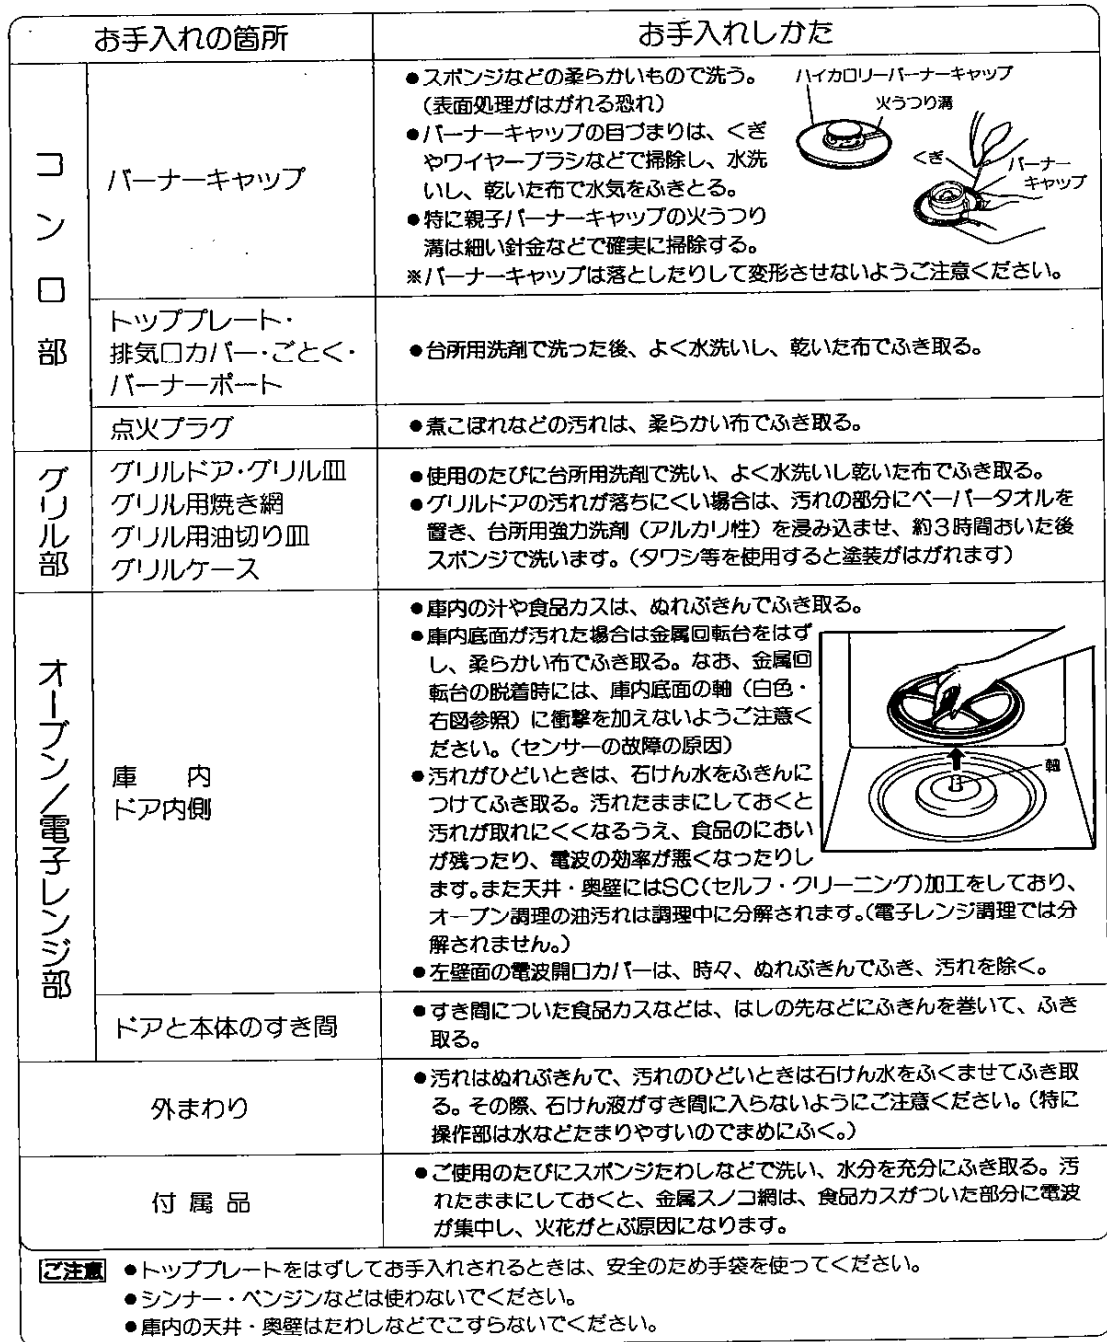 お手入れの箇所
お手入れしかた
コンロ部
バーナーキャップ
●スポンジなどの柔らかいもので洗う。
(表面処理がはがれる恐れ)
●バーナーキャップの目づまりは、くぎ
やワイヤーブラシなどで掃除し、水洗
いし、乾いた布で水気をふきとる。
●特に親子バーナーキャップの火うつり
溝は細い針金などで確実に掃除する。
※バーナーキャップは落としたりして変形させないようご注意ください。
ハイカロリーバーナーキャップ
火うつり溝
くぎ
バーナー
キャップ
トッププレート・
排気口カバー・ごとく・
バーナーポート
●台所用洗剤で洗った後、よく水洗いし、乾いた布でふき取る。
点火プラグ
●煮こぼれなどの汚れは、柔らかい布でふき取る。
グリル部
グリルドア・グリル皿
グリル用焼き網
グリル用油切り皿
グリルケース
●使用のたびに台所用洗剤で洗い、よく水洗いし乾いた布でふき取る。
●グリルドアの汚れが落ちにくい場合は、汚れの部分にペーパータオルを
置き、台所用強力洗剤(アルカリ性)を浸み込ませ、約3時間おいた後
スポンジで洗います。(タワシ等を使用すると塗装がはがれます)
オーブン/電子レンジ部
庫 内
ドア内側
●庫内の汁や食品カスは、ぬれぶきんでふき取る。
●庫内底面が汚れた場合は金属回転台をはず
し、柔らかい布でふき取る。なお、金属回
転台の脱着時には、庫内底面の軸(白色・
右図参照)に衝撃を加えないようご注意く
ださい。(センサーの故障の原因)
●汚れがひどいときは、石けん水をふきんに
つけてふき取る。汚れたままにしておくと
汚れが取れにくくなるうえ、食品のにおい
が残ったり、電波の効率が悪くなったりし
ます。また天井・奥壁にはSC(セルフ・クリーニング)加工をしており、
オーブン調理の油汚れは調理中に分解されます。(電子レンジ調理では分
解されません。)
●左壁面の電波開口カバーは、時々、ぬれぶきんでふき、汚れを除く。
軸
ドアと本体のすき間
●すき間についた食品カスなどは、はしの先などにふきんを巻いて、ふき
取る。
外まわり
●汚れはぬれぶきんで、汚れのひどいときは石けん水をふくませてふき取
る。その際、石けん液がすき間に入らないようにご注意ください。(特に
操作部は水などたまりやすいのでまめにふく。)
付属品
●ご使用のたびにスポンジたわしなどで洗い、水分を充分にふき取る。汚
れたままにしておくと、金属スノコ網は、食品カスがついた部分に電波
が集中し、火花がとぶ原因になります。
ご注意 ●トッププレートをはずしてお手入れされるときは、安全のため手袋を使ってください。
●シンナー・ベンジンなどは使わないでください。
●庫内の天井・奥壁はたわしなどでこすらないでください。